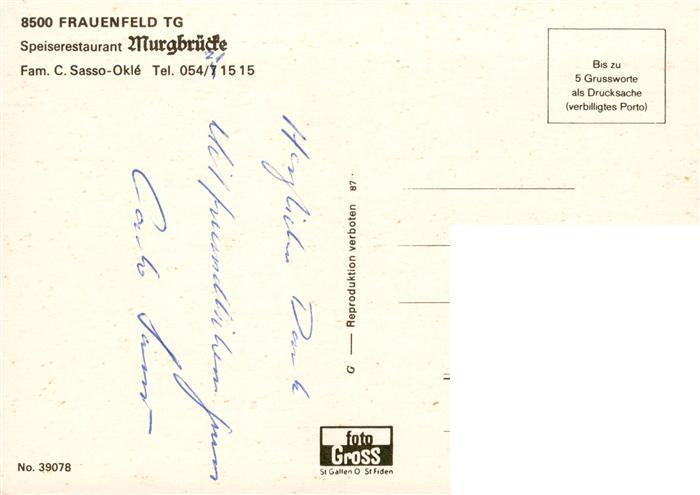 8500 FRAUENFELD TG
Speiserestaurant Murgbrücke
Fam. C. Sasso-Oklé Tel. 054/7 15 15
Bis zu
5 Grussworte
als Drucksache
(verbilligtes Porto)
Herzlichen Dank
Mit freundlichem Gruss
Carlo Sasso
G — Reproduktion verboten 87.
foto
Gross
St Gallen O St Fiden
No. 39078